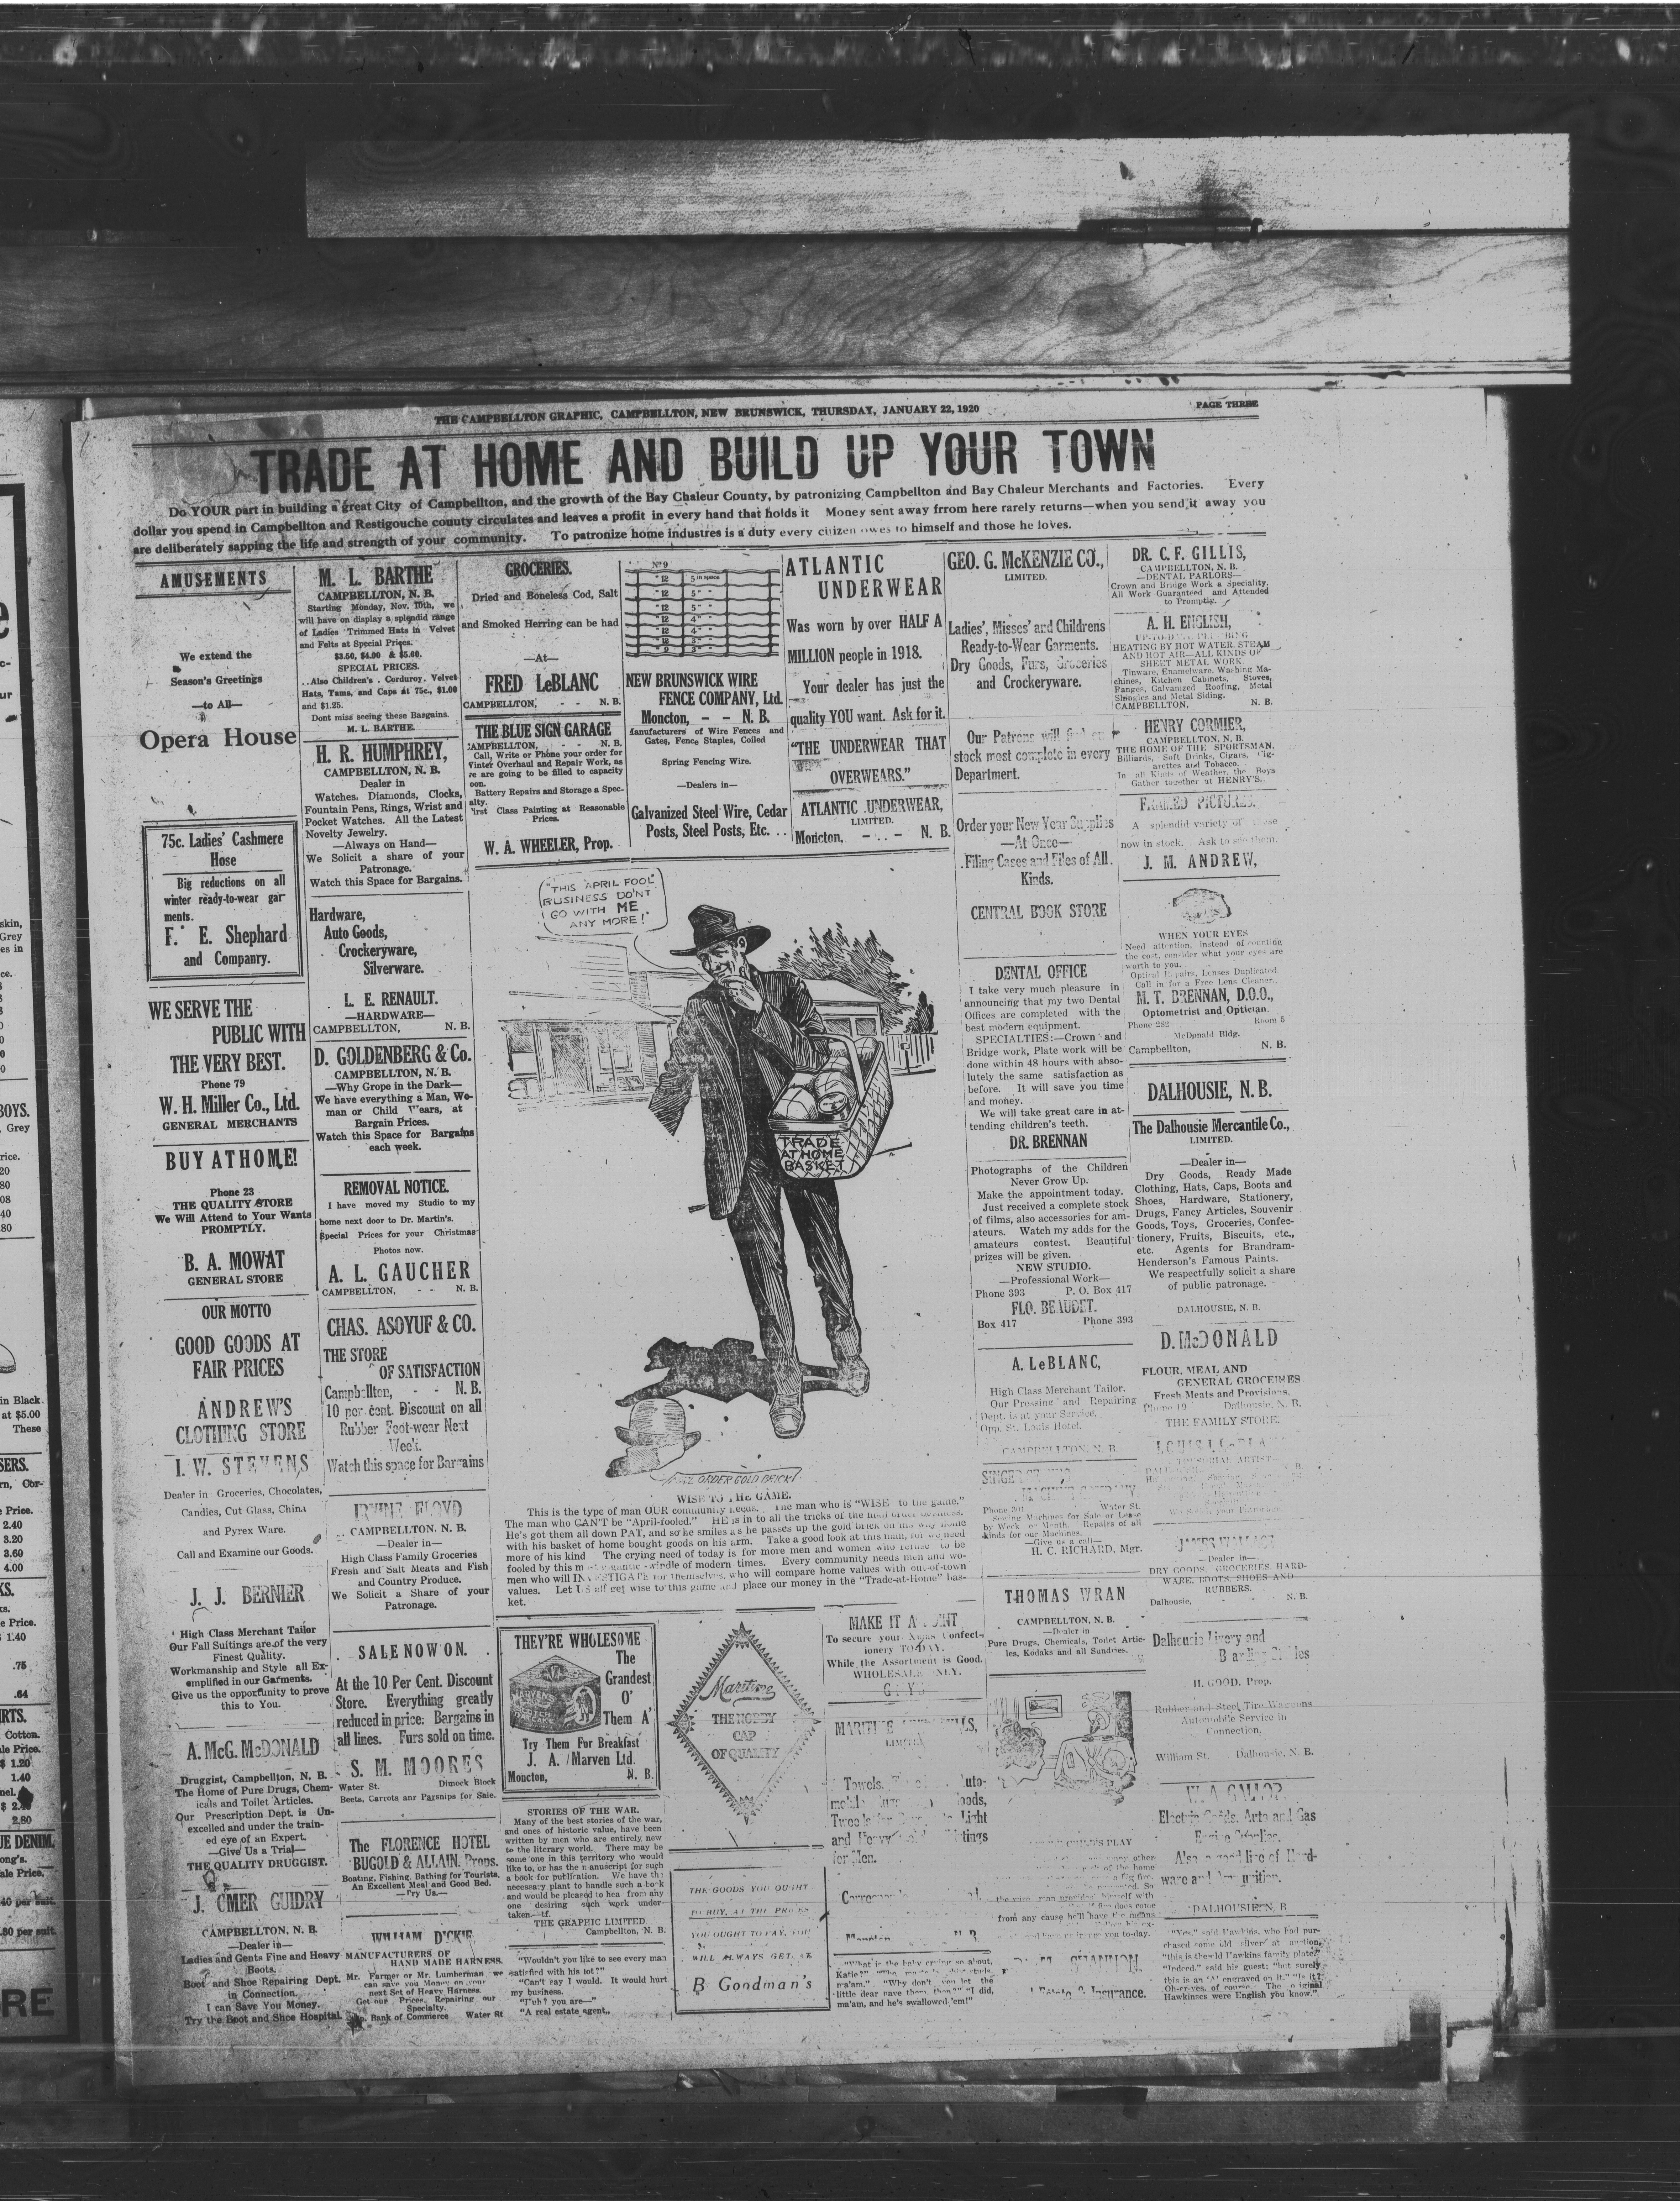 THE CAMPBELLTON GRAPHIC, CAMPBELLTON, NEW BRUNSWICK, THURSDAY, JANUARY 22, 1920
PAGE THREE
TRADE AT HOME AND BUILD UP YOUR TOWN
Do YOUR part in building a great City of Campbellton, and the growth of the Bay Chaleur County, by patronizing Campbellton and Bay Chaleur Merchants and Factories. Every
dollar you spend in Campbellton and Restigouche county circulates and leaves a profit in every hand that holds it Money sent away frrom here rarely returns—when you send it away you
are deliberately sapping the life and strength of your community. To patronize home industres is a duty every citizen owes to himself and those he loves.
AMUSEMENTS
We extend the
Season's Greetings
—to All—
Opera House
75c. Ladies' Cashmere
Hose
Big reductions on all
winter ready-to-wear gar
ments.
F. E. Shephard
and Companry.
WE SERVE THE
PUBLIC WITH
THE VERY BEST.
Phone 79
W. H. Miller Co., Ltd.
GENERAL MERCHANTS
BUY AT HOME!
Phone 23
THE QUALITY STORE
We Will Attend to Your Wants
PROMPTLY.
B. A. MOWAT
GENERAL STORE
OUR MOTTO
GOOD GOODS AT
FAIR PRICES
ANDREW'S
CLOTHING STORE
I. W. STEVENS
Dealer in Groceries, Chocolates,
Candies, Cut Glass, China
and Pyrex Ware.
Call and Examine our Goods.
J. J. BERNIER
High Class Merchant Tailor
Our Fall Suitings are of the very
Finest Quality.
Workmanship and Style all Ex-
emplified in our Garments.
Give us the opportunity to prove
this to You.
A. McG. McDONALD
Druggist, Campbellton, N. B.
The Home of Pure Drugs, Chem-
icals and Toilet Articles.
Our Prescription Dept. is Un-
excelled and under the train-
ed eye of an Expert.
—Give Us a Trial—
THE QUALITY DRUGGIST.
J. OMER GUIDRY
CAMPBELLTON, N. B.
—Dealer in—
Ladies and Gents Fine and Heavy
Boots.
Boot and Shoe Repairing Dept.
in Connection.
I can Save You Money.
Try the Boot and Shoe Hospital.
M. L. BARTHE
CAMPBELLTON, N. B.
Starting Monday, Nov. 10th, we
will have on display a splendid range
of Ladies Trimmed Hats in Velvet
and Felts at Special Prices.
$3.50, $4.00 & $5.00.
SPECIAL PRICES.
..Also Children's . Corduroy. Velvet
Hats, Tams, and Caps at 75c., $1.00
and $1.25.
Dont miss seeing these Bargains.
M. L. BARTHE.
H. R. HUMPHREY,
CAMPBELLTON, N. B.
Dealer in
Watches, Diamonds, Clocks,
Fountain Pens, Rings, Wrist and
Pocket Watches. All the Latest
Novelty Jewelry.
—Always on Hand—
We Solicit a share of your
Patronage.
Watch this Space for Bargains.
Hardware,
Auto Goods,
Crockeryware,
Silverware.
L. E. RENAULT.
—HARDWARE—
CAMPBELLTON, N. B.
D. GOLDENBERG & Co.
CAMPBELLTON, N. B.
—Why Grope in the Dark—
We have everything a Man, Wo-
man or Child Wears, at
Bargain Prices.
Watch this Space for Bargains
each week.
REMOVAL NOTICE.
I have moved my Studio to my
home next door to Dr. Martin's.
Special Prices for your Christmas
Photos now.
A. L. GAUCHER
CAMPBELLTON, - - N. B.
CHAS. ASOYUF & CO.
THE STORE
OF SATISFACTION
Campbellton, - - N. B.
10 per cent. Discount on all
Rubber Foot-wear Next
Week.
Watch this space for Bargains
IRVINE FLOYD
CAMPBELLTON, N. B.
—Dealer in—
High Class Family Groceries
Fresh and Salt Meats and Fish
and Country Produce.
We Solicit a Share of your
Patronage.
SALE NOW ON.
At the 10 Per Cent. Discount
Store. Everything greatly
reduced in price. Bargains in
all lines. Furs sold on time.
S. M. MOORES
Water St. Dimock Block
Beets, Carrots anr Parsnips for Sale.
The FLORENCE HOTEL
BUGOLD & ALLAIN, Props.
Boating, Fishing, Bathing for Tourists.
An Excellent Meal and Good Bed.
—Try Us.—
WILLIAM DICKIE
MANUFACTURERS OF
HAND MADE HARNESS.
Mr. Farmer or Mr. Lumberman we
can save you Money on your
next Set of Heavy Harness.
Get our Prices. Repairing our
Specialty.
Bank of Commerce Water St
GROCERIES.
Dried and Boneless Cod, Salt
and Smoked Herring can be had
—At—
FRED LeBLANC
CAMPBELLTON, - - N. B.
THE BLUE SIGN GARAGE
CAMPBELLTON, - - N. B.
Call, Write or Phone your order for
Winter Overhaul and Repair Work, as
re are going to be filled to capacity
oon.
Battery Repairs and Storage a Spec-
alty.
First Class Painting at Reasonable
Prices.
W. A. WHEELER, Prop.
NEW BRUNSWICK WIRE
FENCE COMPANY, Ltd.
Moncton, - - N. B.
Manufacturers of Wire Fences and
Gates, Fence Staples, Coiled
Spring Fencing Wire.
—Dealers in—
Galvanized Steel Wire, Cedar
Posts, Steel Posts, Etc. . .
ATLANTIC
UNDERWEAR
Was worn by over HALF A
MILLION people in 1918.
Your dealer has just the
quality YOU want. Ask for it.
"THE UNDERWEAR THAT
OVERWEARS."
ATLANTIC UNDERWEAR,
LIMITED.
Moncton, - - N. B.
"THIS APRIL FOOL
BUSINESS DO'NT
GO WITH ME
ANY MORE!"
TRADE
AT HOME
BASKET
ORDER GOLD BRICK
WISE TO THE GAME.
This is the type of man OUR community needs. The man who is "WISE to the game."
The man who CAN'T be "April-fooled." HE is in to all the tricks of the mail order business.
He's got them all down PAT, and so he smiles as he passes up the gold brick on his way home
with his basket of home bought goods on his arm. Take a good look at this man, for we need
more of his kind The crying need of today is for more men and women who refuse to be
fooled by this most gigantic swindle of modern times. Every community needs men and wo-
men who will INVESTIGATE for themselves, who will compare home values with out-of-town
values. Let US all get wise to this game and place our money in the "Trade-at-Home" bas-
ket.
THEY'RE WHOLESOME
The
Grandest
O'
Them A'
Try Them For Breakfast
J. A. Marven Ltd.
Moncton, N. B.
STORIES OF THE WAR.
Many of the best stories of the war,
and ones of historic value, have been
written by men who are entirely new
to the literary world. There may be
some one in this territory who would
like to, or has the manuscript for such
a book for publication. We have the
necessary plant to handle such a book
and would be pleased to hea from any
one desiring such work under-
taken.—tf.
THE GRAPHIC LIMITED.
Campbellton, N. B.
"Wouldn't you like to see every man
satisfied with his lot?"
"Can't say I would. It would hurt
my business.
"Why are you—"
"A real estate agent,,
Maritime
THE NOBBY
CAP
OF QUALITY
THE GOODS YOU OUGHT
TO BUY, AT THE PRICES
YOU OUGHT TO PAY, YOU
WILL ALWAYS GET AT
B Goodman's
MAKE IT A
To secure your Xmas Confect-
ionery TO-DAY.
While the Assortment is Good.
WHOLESALE ONLY.
MARITIME
LIMITED
Towels,
Light
and Heavy
for Men.
"What is the baby crying so about,
Katie?"
ma'am." "Why don't you let the
little dear have them then?" "I did,
ma'am, and he's swallowed 'em!"
GEO. G. McKENZIE CO.,
LIMITED.
Ladies', Misses' and Childrens
Ready-to-Wear Garments.
Dry Goods, Furs, Groceries
and Crockeryware.
Our Patrons will find our
stock most complete in every
Department.
Order your New Year Supplies
—At Once—
Filing Cases and Files of All
Kinds.
CENTRAL BOOK STORE
DENTAL OFFICE
I take very much pleasure in
announcing that my two Dental
Offices are completed with the
best modern equipment.
SPECIALTIES:—Crown and
Bridge work, Plate work will be
done within 48 hours with abso-
lutely the same satisfaction as
before. It will save you time
and money.
We will take great care in at-
tending children's teeth.
DR. BRENNAN
Photographs of the Children
Never Grow Up.
Make the appointment today.
Just received a complete stock
of films, also accessories for am-
ateurs. Watch my adds for the
amateurs contest. Beautiful
prizes will be given.
NEW STUDIO.
—Professional Work—
Phone 393 P. O. Box 417
FLO. BEAUDET.
Box 417 Phone 393
A. LeBLANC,
High Class Merchant Tailor.
Our Pressing and Repairing
Dept. is at your Service.
Opp. St. Louis Hotel.
CAMPBELLTON, N. B.
SINGER
Phone 301 Water St.
Sewing Machines for Sale or Lease
by Week or Month. Repairs of all
kinds for our Machines.
—Give us a call—
H. C. RICHARD, Mgr.
THOMAS WRAN
CAMPBELLTON, N. B.
—Dealer in
Pure Drugs, Chemicals, Toilet Artic-
les, Kodaks and all Sundries.
CHILD'S PLAY
other
of the home
the wise man provides himself with
from any cause he'll have the means
SHANNON.
Insurance.
DR. C. F. GILLIS,
CAMPBELLTON, N. B.
—DENTAL PARLORS—
Crown and Bridge Work a Speciality,
All Work Guaranteed and Attended
to Promptly.
A. H. ENGLISH,
HEATING BY HOT WATER, STEAM
AND HOT AIR—ALL KINDS OF
SHEET METAL WORK.
Tinware, Enamelware, Washing Ma-
chines, Kitchen Cabinets, Stoves,
Ranges, Galvanized Roofing, Metal
Shingles and Metal Siding.
CAMPBELLTON, N. B.
HENRY CORMIER,
CAMPBELLTON, N. B.
THE HOME OF THE SPORTSMAN.
Billiards, Soft Drinks, Cigars, Cig-
arettes and Tobacco.
In all Kinds of Weather, the Boys
Gather together at HENRY'S.
FRAMED PICTURES.
A splendid variety of these
now in stock. Ask to see them.
J. M. ANDREW,
WHEN YOUR EYES
Need attention, instead of counting
the cost, consider what your eyes are
worth to you.
Optical Repairs, Lenses Duplicated.
Call in for a Free Lens Cleaner.
M. T. BRENNAN, D.O.O.,
Optometrist and Optician.
Phone 282 Room 5
McDonald Bldg.
Campbellton, N. B.
DALHOUSIE, N. B.
The Dalhousie Mercantile Co.,
LIMITED.
—Dealer in—
Dry Goods, Ready Made
Clothing, Hats, Caps, Boots and
Shoes, Hardware, Stationery,
Drugs, Fancy Articles, Souvenir
Goods, Toys, Groceries, Confec-
tionery, Fruits, Biscuits, etc.,
etc. Agents for Brandram-
Henderson's Famous Paints.
We respectfully solicit a share
of public patronage.
DALHOUSIE, N. B.
D. McDONALD
FLOUR, MEAL AND
GENERAL GROCERIES
Fresh Meats and Provisions.
Phone 19 Dalhousie, N. B.
THE FAMILY STORE.
LOUIS LeBLANC
TONSORIAL ARTIST—
JAMES WALLACE
—Dealer in—
DRY GOODS, GROCERIES, HARD-
WARE, BOOTS, SHOES AND
RUBBERS.
Dalhousie, - - N. B.
Dalhousie Livery and
Boarding Stables
H. GOOD, Prop.
Rubber and Steel Tire Waggons
Automobile Service in
Connection.
William St. Dalhousie, N. B.
W. A. GALLOP
Electric Goods, Auto and Gas
Engine Supplies.
Also a good line of Hard-
ware and Ammunition.
DALHOUSIE, N. B
"Yes," said Hawkins, who had pur-
chased some old silver at auction,
"this is the old Hawkins family plate."
"Indeed," said his guest; "but surely
this is an 'A' engraved on it." "Is it?
Oh-er-yes, of course. The original
Hawkinses were English you know."